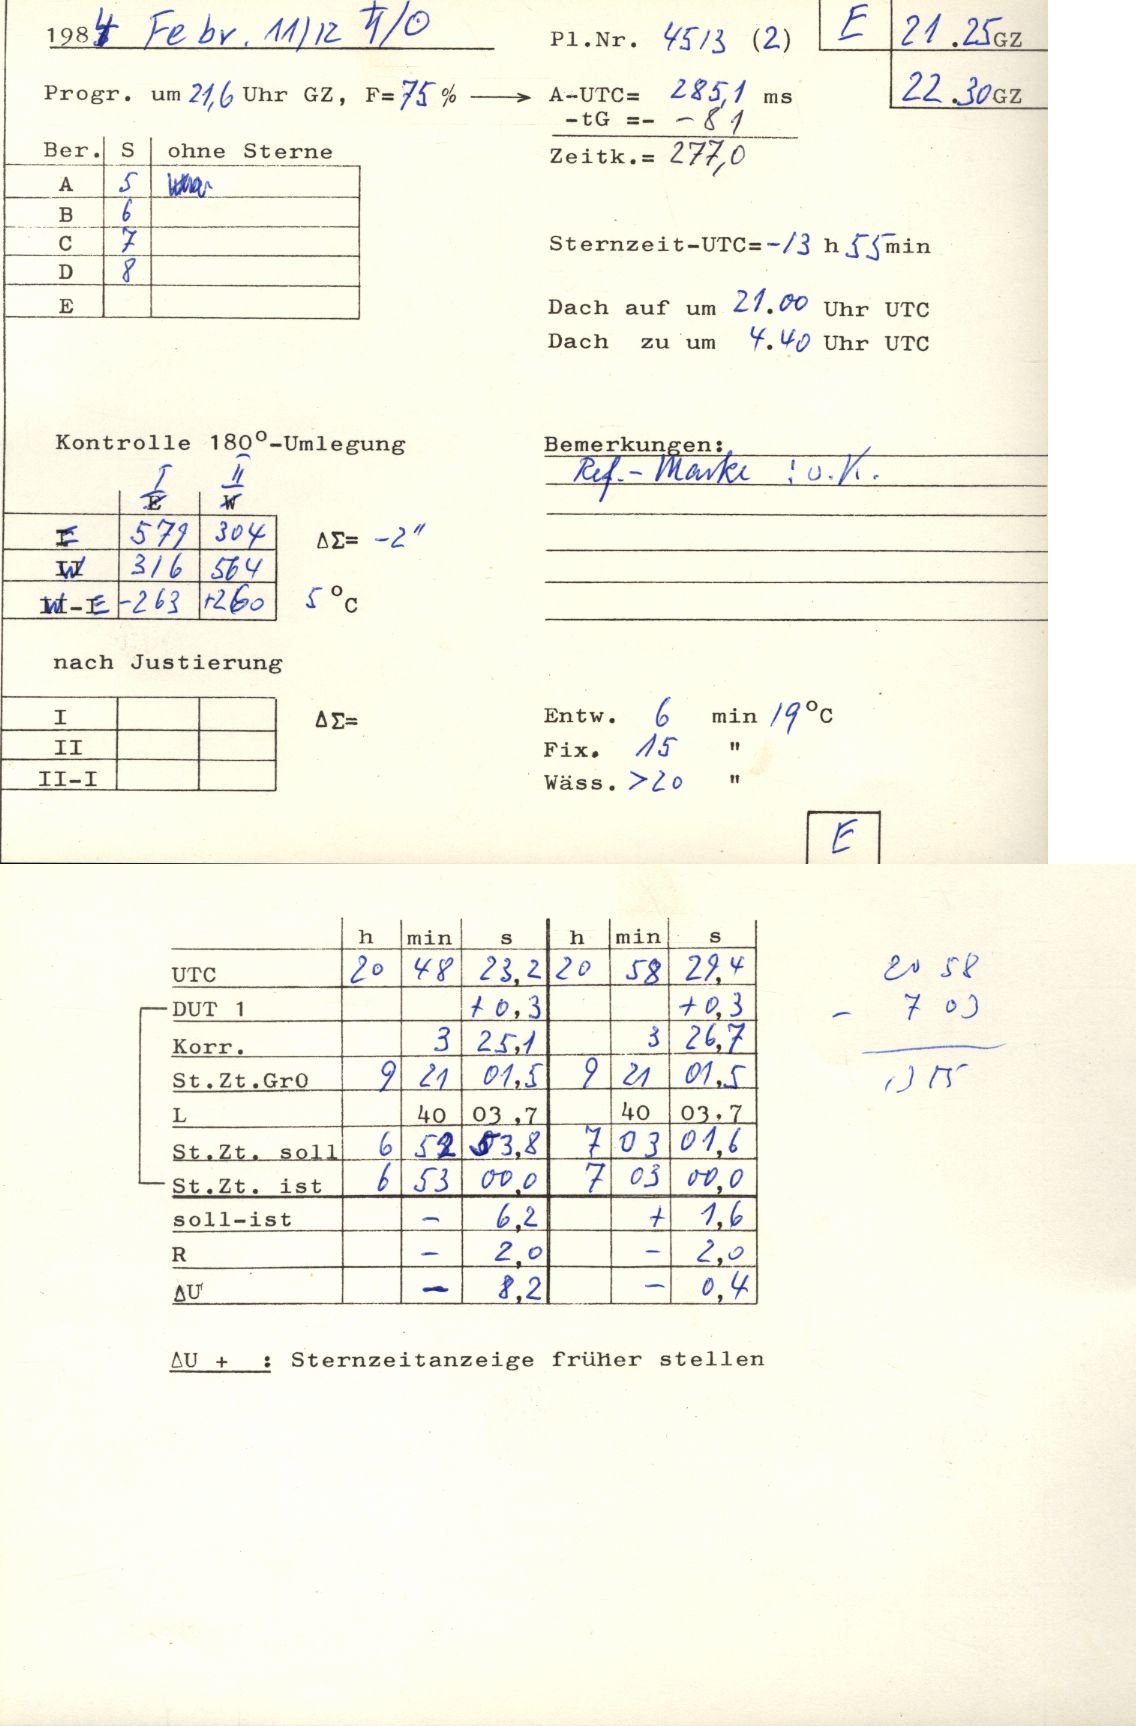 1984 Febr. 11/12 Ŧ/O Pl.Nr. 4513 (2) E 21.25GZ
22.30GZ
Progr. um 21,6 Uhr GZ, F=75% A-UTC= 285,1 ms
-tG =- -81
Zeitk.= 277,0
Ber. S ohne Sterne
A 5
B 6
C 7
D 8
E
Sternzeit-UTC=-13 h 55min
Dach auf um 21.00 Uhr UTC
Dach zu um 4.40 Uhr UTC
Kontrolle 180°-Umlegung
I II
E W
E 579 304 ΔΣ= -2"
W 316 564
W-E -263 +260 5 °C
Bemerkungen:
Ref.- Marke : o.K.
nach Justierung
I ΔΣ=
II
II-I
Entw. 6 min 19°C
Fix. 15 "
Wäss. >20 "
E
h min s h min s
UTC 20 48 23,2 20 58 29,4
DUT 1 +0,3 +0,3
Korr. 3 25,1 3 26,7
St.Zt.Gr0 9 21 01,5 9 21 01,5
L 40 03,7 40 03,7
St.Zt. soll 6 52 53,8 7 03 01,6
St.Zt. ist 6 53 00,0 7 03 00,0
soll-ist - 6,2 + 1,6
R - 2,0 - 2,0
ΔU - 8,2 - 0,4
20 58
- 7 03
13 55
ΔU + : Sternzeitanzeige früher stellen